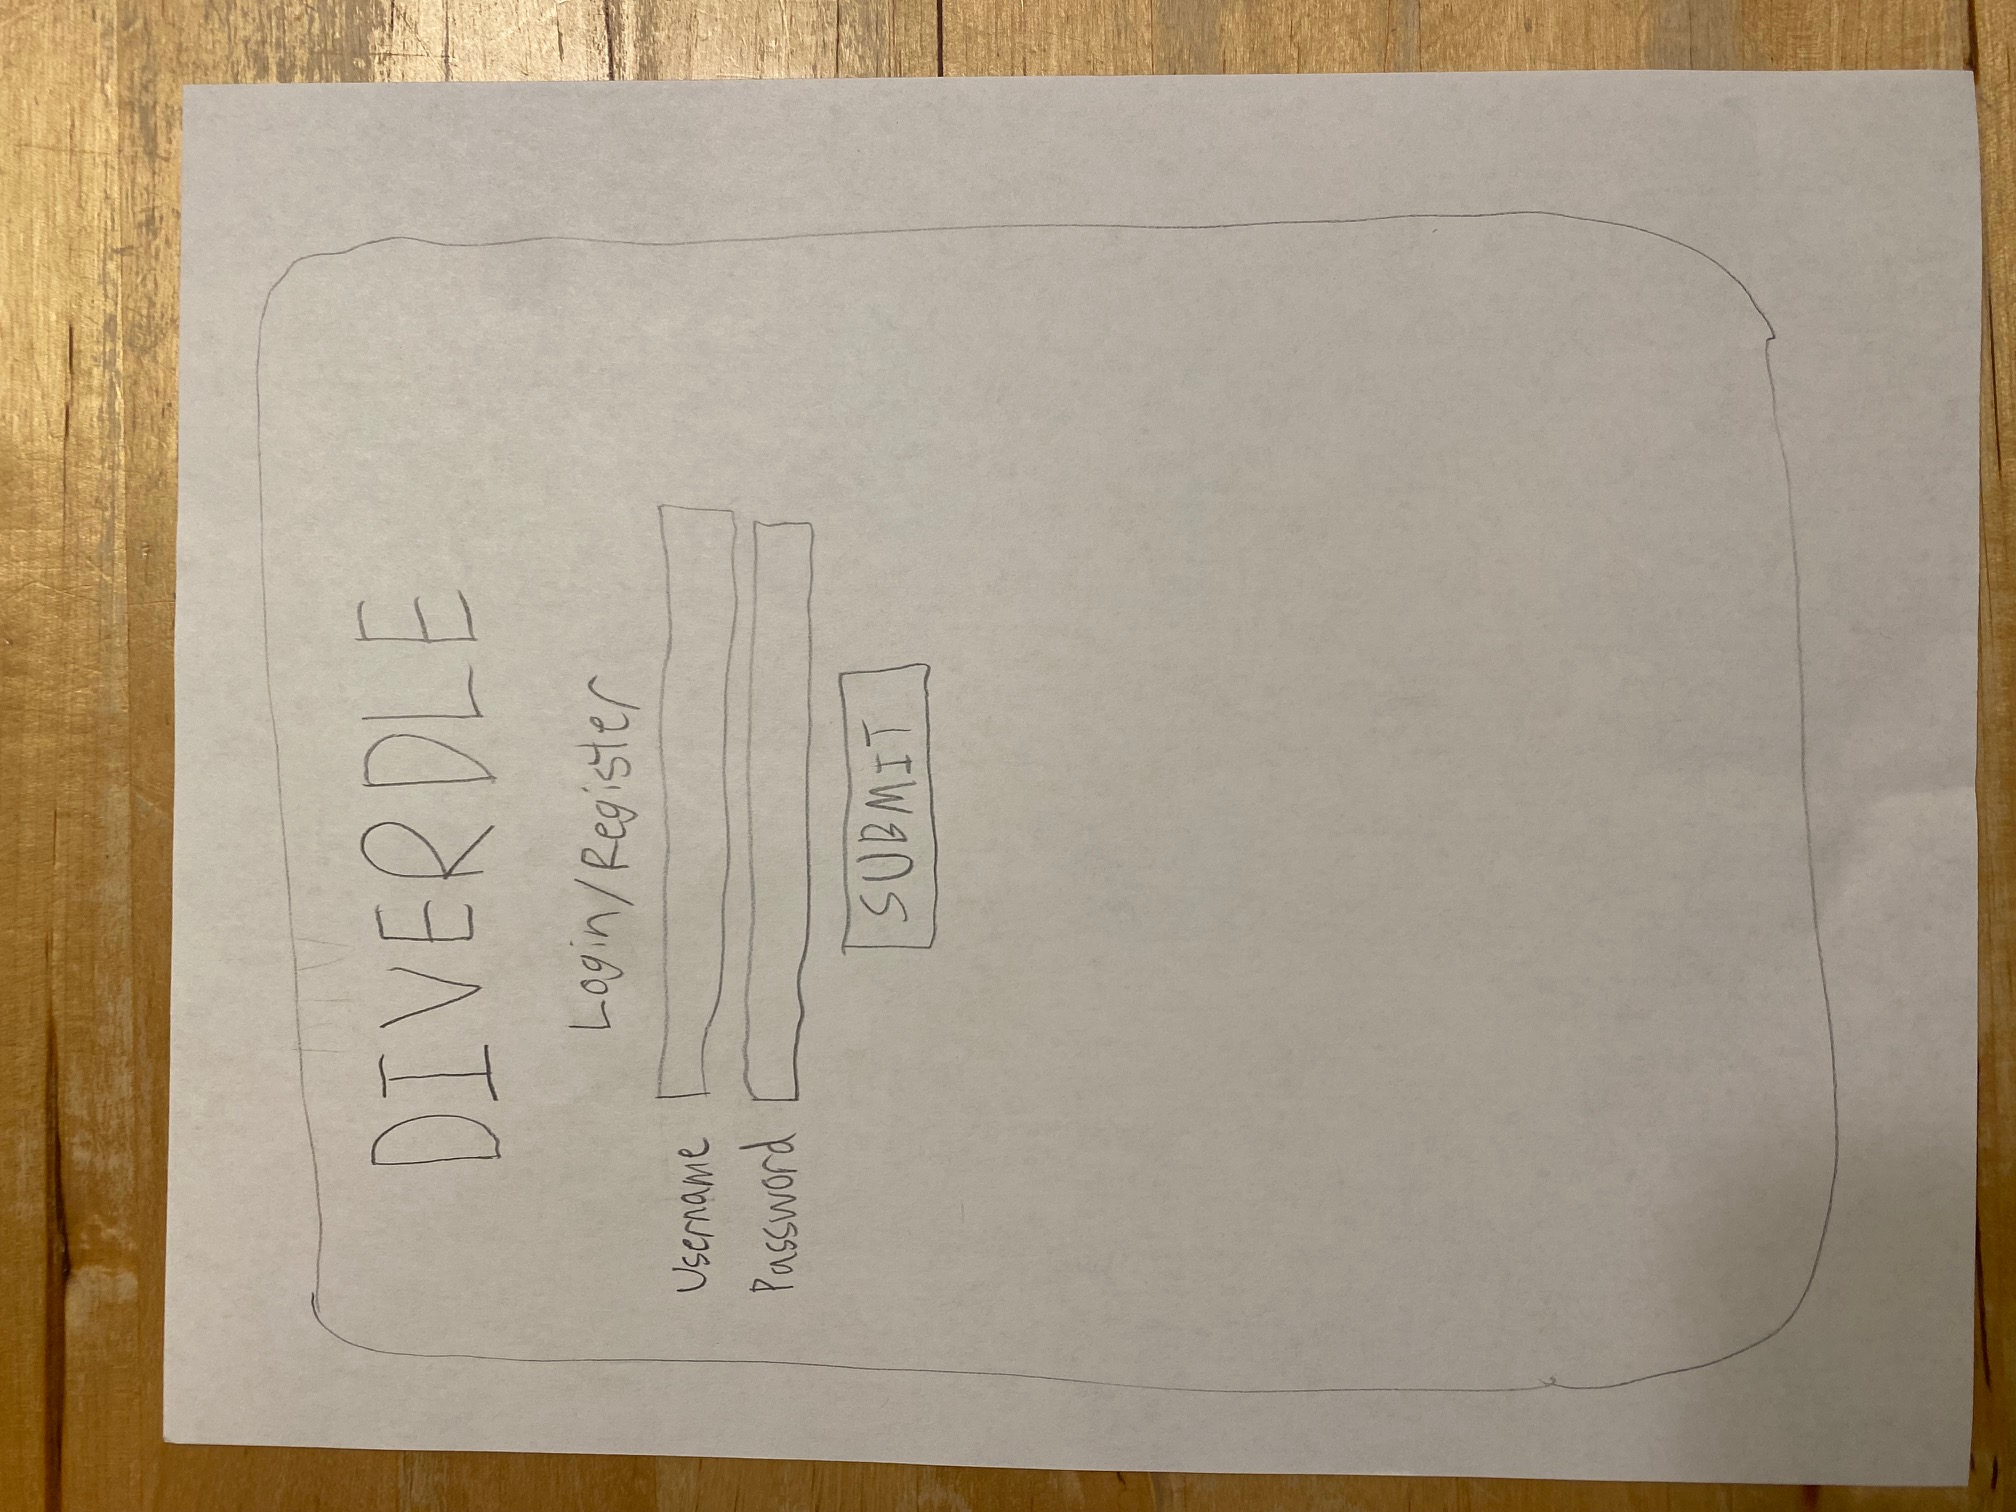 DIVERDLE
Login/Register
Username
Password
SUBMIT